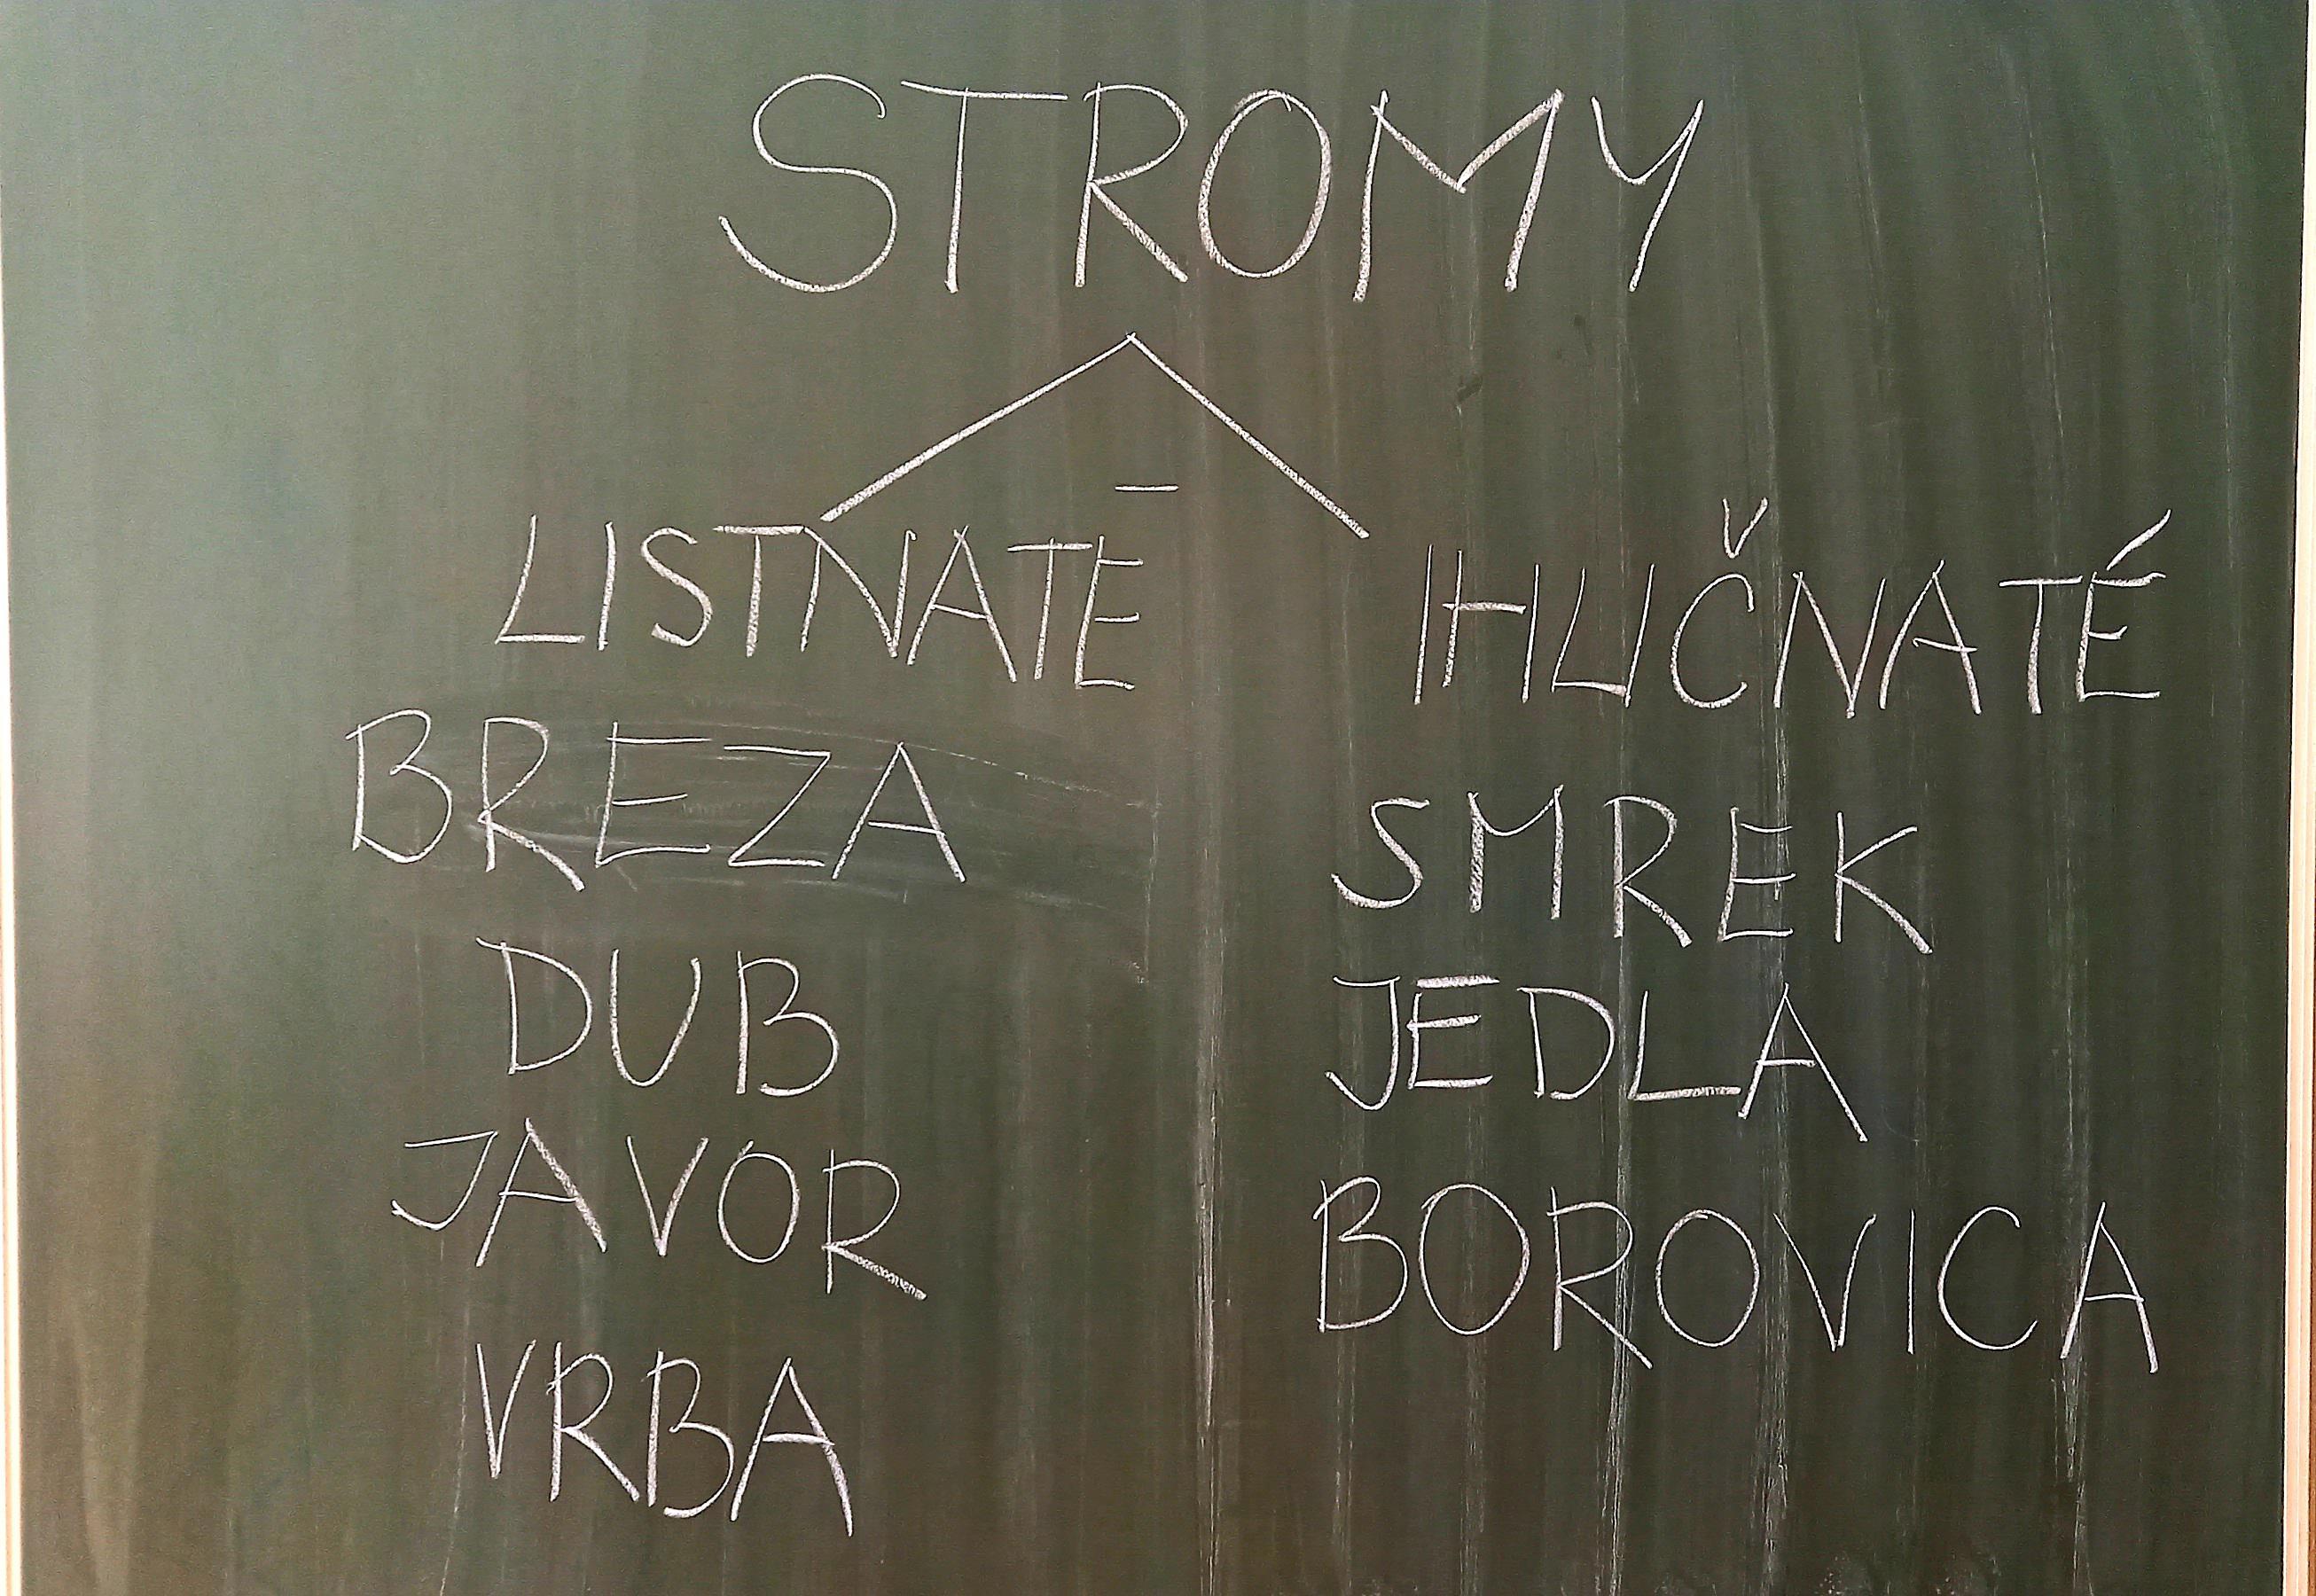 STROMY
LISTNATÉ
IHLIČNATÉ
BREZA
DUB
JAVOR
VRBA
SMREK
JEDLA
BOROVICA